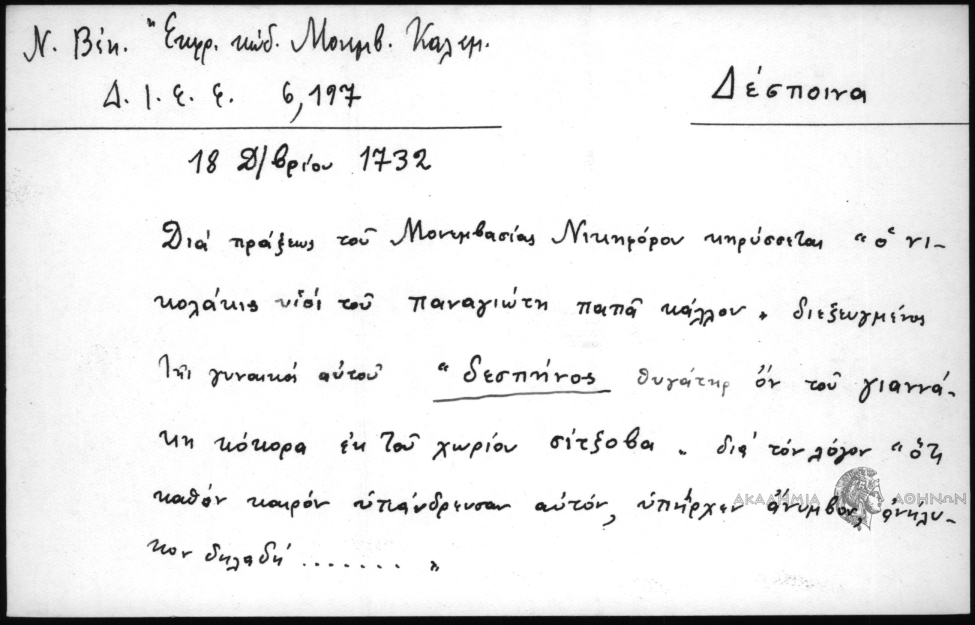 Ν. Βέη. "Εκφρ. κώδ. Μονεμβ. Καλαμ.
Δ. Ι. Ε. Ε. 6,197
Δέσποινα
18 Δ/βρίου 1732
Διά πράξεως τοῦ Μονεμβασίας Νικηφόρου κηρύσσεται "ὁ νι-
κολάκις υἱὸς τοῦ παναγιώτη παπᾶ κάλλου „ διεξευγμένος
τῆς γυναικός αὐτοῦ "δεσπήνος θυγάτηρ ὄν τοῦ γιαννά-
κη κόκορα ἐκ τοῦ χωρίου σίτξοβα „ διά τόν λόγον "ὅτι
καθόν καιρόν ὑπάνδρευσαν αὐτόν, ὑπῆρχεν ἄνυμβον, ἀνήλυ-
κον δηλαδή ....... „
ΑΚΑΔΗΜΙΑ ΑΘΗΝΩΝ